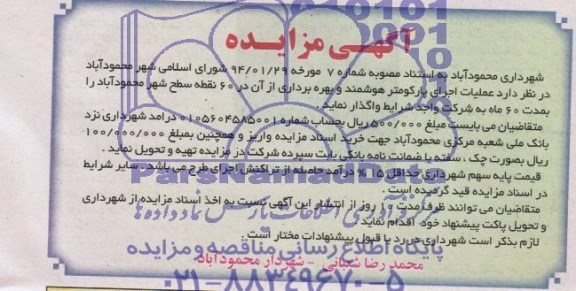 آگهی مزایده
شهرداری محمودآباد به استناد مصوبه شماره ۷ مورخه ۹۴/۰۱/۲۹ شورای اسلامی شهر محمودآباد
در نظر دارد عملیات اجرای پارکومتر هوشمند و بهره برداری از آن در ۶۰ نقطه سطح شهر محمودآباد را
بمدت ۶۰ ماه به شرکت واجد شرایط واگذار نماید
متقاضیان می بایست مبلغ ۵۰۰/۰۰۰ ریال بحساب شماره ۰۱۰۵۶۰۴۵۸۵۰۰۱ درامد شهرداری نزد
بانک ملی شعبه مرکزی محمودآباد جهت خرید اسناد مزایده واریز و همچنین بمبلغ ۱۰۰/۰۰۰/۰۰۰
ریال بصورت چک ، سفته یا ضمانت نامه بانکی بابت سپرده شرکت در مزایده تهیه و تحویل نماید .
قیمت پایه سهم شهرداری حداقل ۱۵٪ درآمد حاصله از تراکنش اجرای طرح می باشد . سایر شرایط
در اسناد مزایده قید گردیده است .
متقاضیان می توانند ظرف مدت ۱۰ روز از انتشار این آگهی نسبت به اخذ اسناد مزایده از شهرداری
و تحویل پاکت پیشنهاد خود اقدام نماید
لازم بذکر است شهرداری در رد یا قبول پیشنهادات مختار است .
محمد رضا شعبانی - شهردار محمودآباد
ParsNamadData
مرکز فرآوری اطلاعات پارس نماد داده ها
پایگاه اطلاع رسانی مناقصه و مزایده
۰۲۱-۸۸۳۴۹۶۷۰-۵